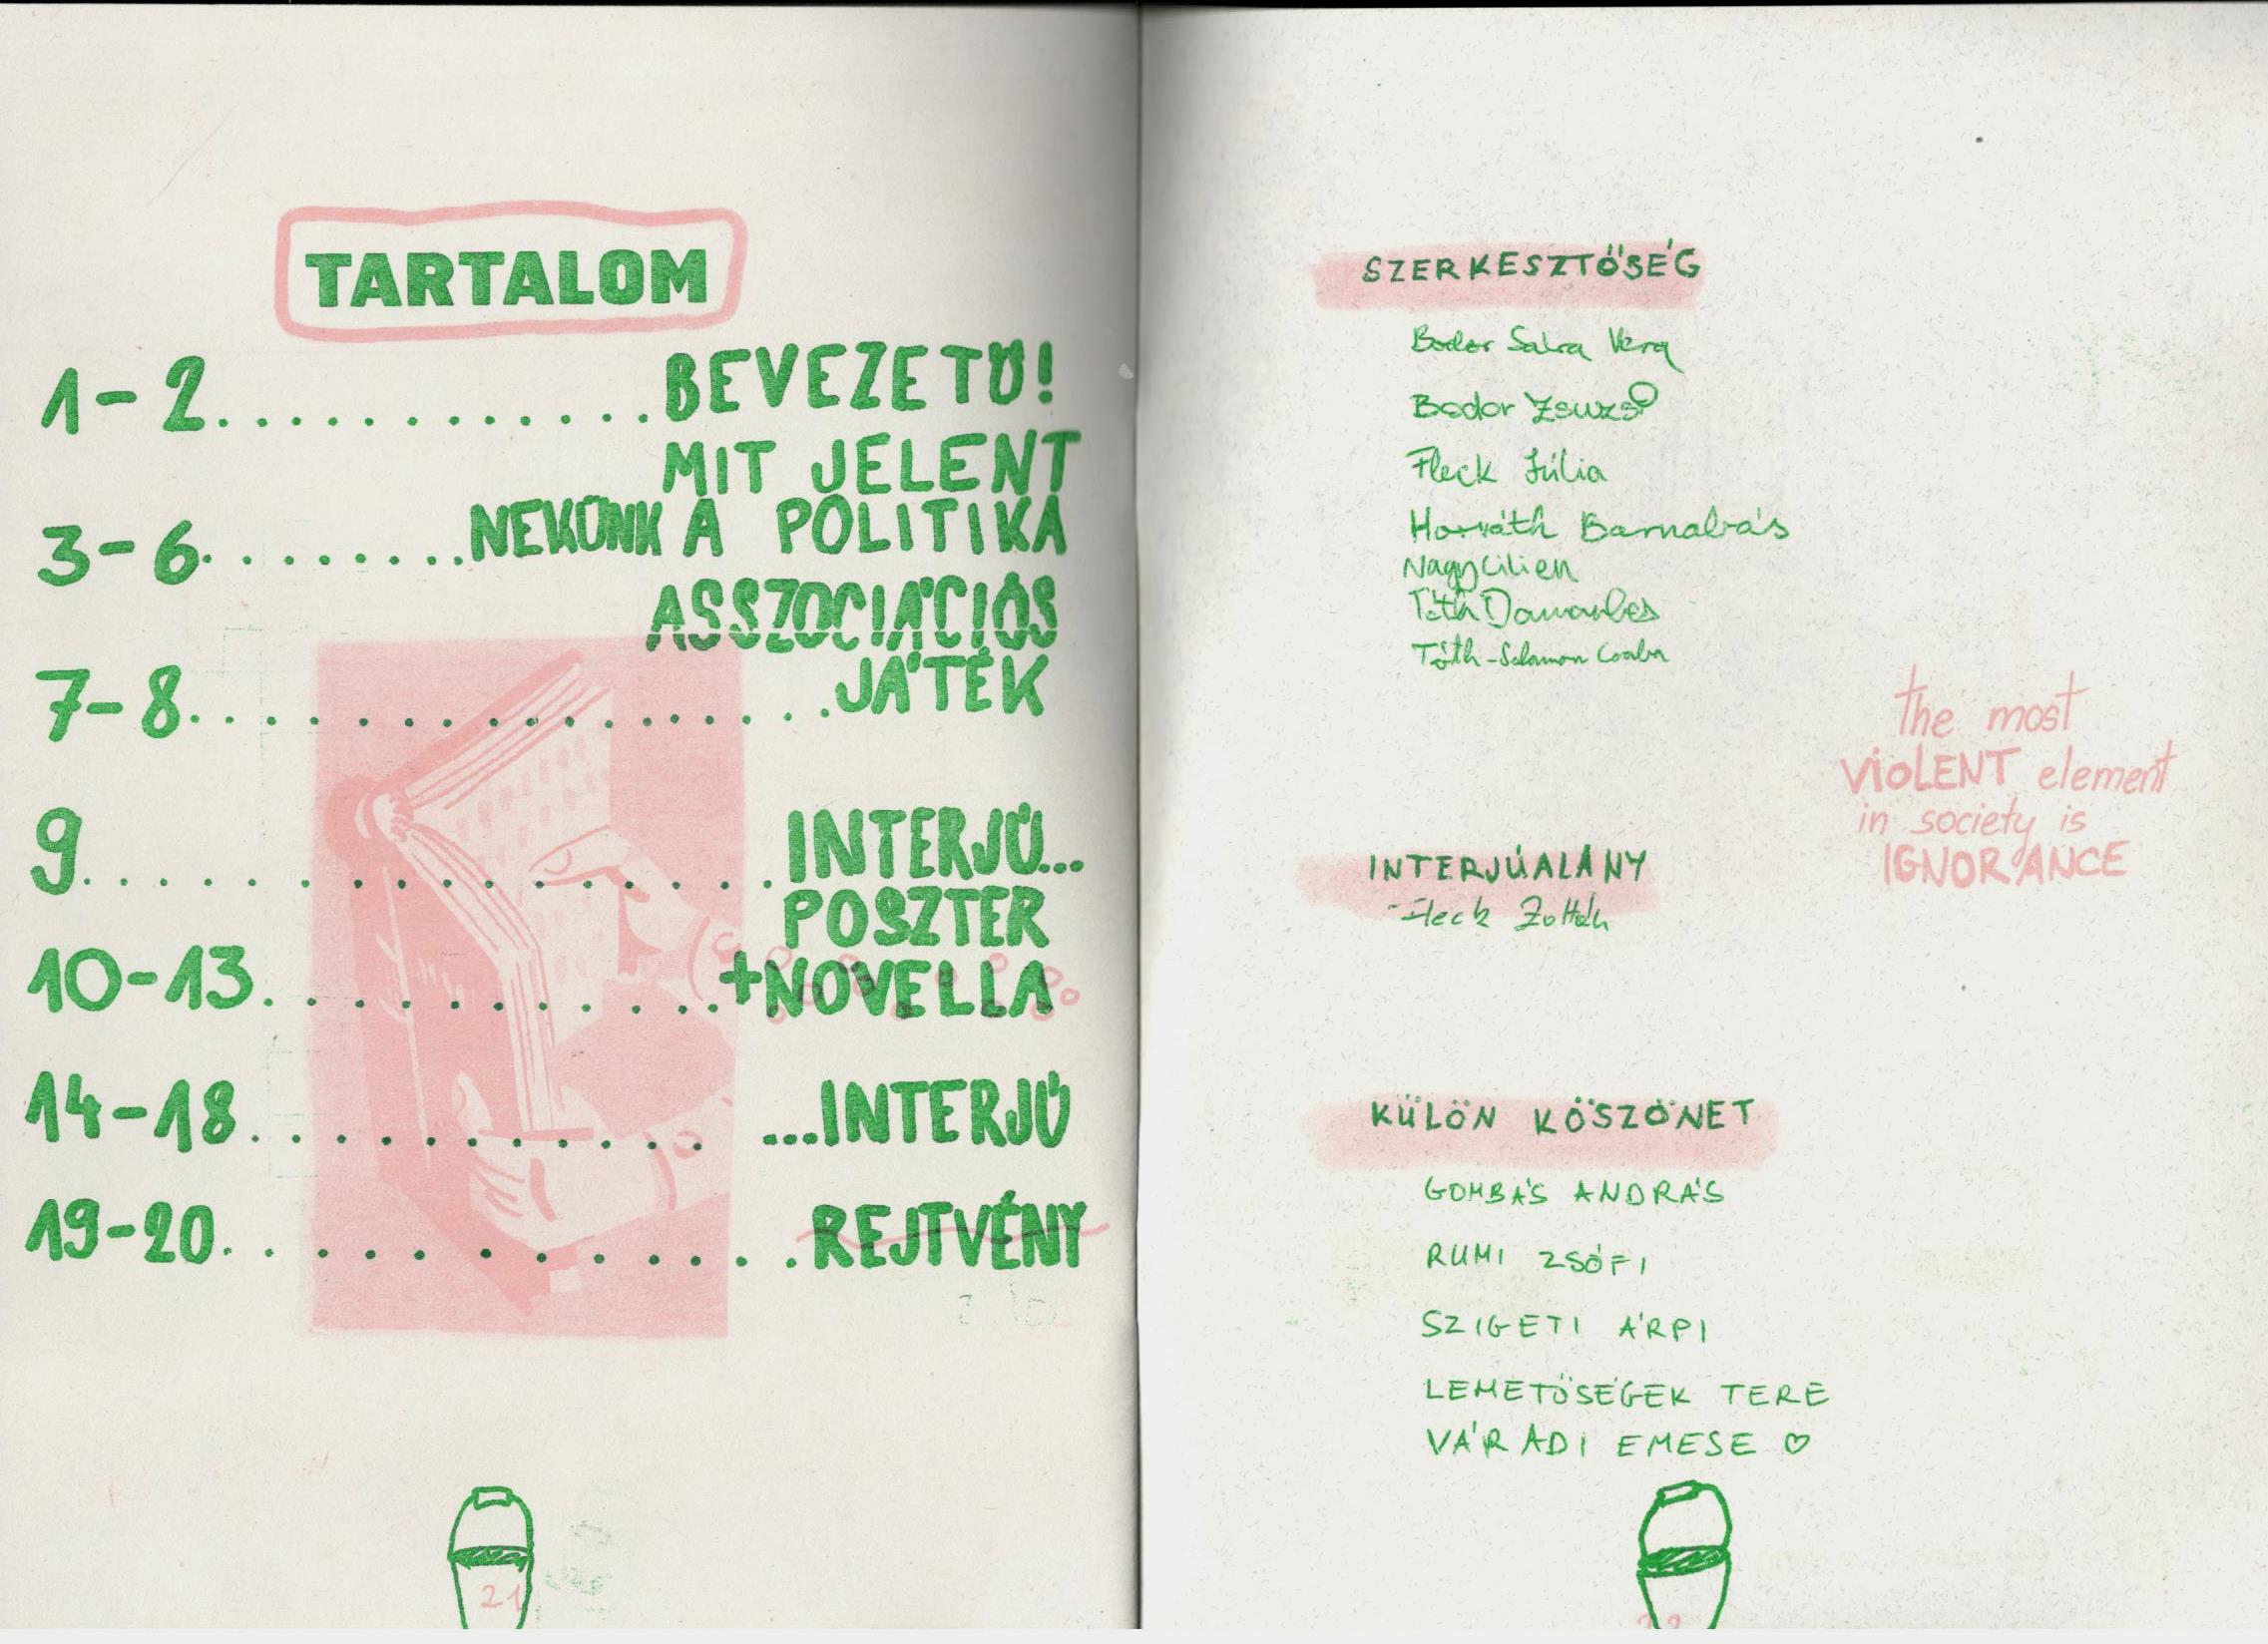 TARTALOM
1-2.............BEVEZETŐ!
MIT JELENT
3-6........NEKÜNK A POLITIKA
ASSZOCIÁCIÓS
7-8.................JÁTÉK
9.................INTERJÚ...
POSZTER
10-13............+NOVELLA
14-18........... ...INTERJÚ
19-20..............REJTVÉNY
21
SZERKESZTŐSÉG
Bodor Sára Vera
Bodor Zsuzsó
Fleck Júlia
Horváth Barnabás
Nagy Lilien
Tóth
Tóth-Salamon Csaba
the most
VIOLENT element
in society is
IGNORANCE
INTERJÚALANY
Fleck Zoltán
KÜLÖN KÖSZÖNET
GOMBÁS ANDRÁS
RUMI ZSÓFI
SZIGETI ÁRPI
LEHETŐSÉGEK TERE
VÁRADI EMESE ♡
22